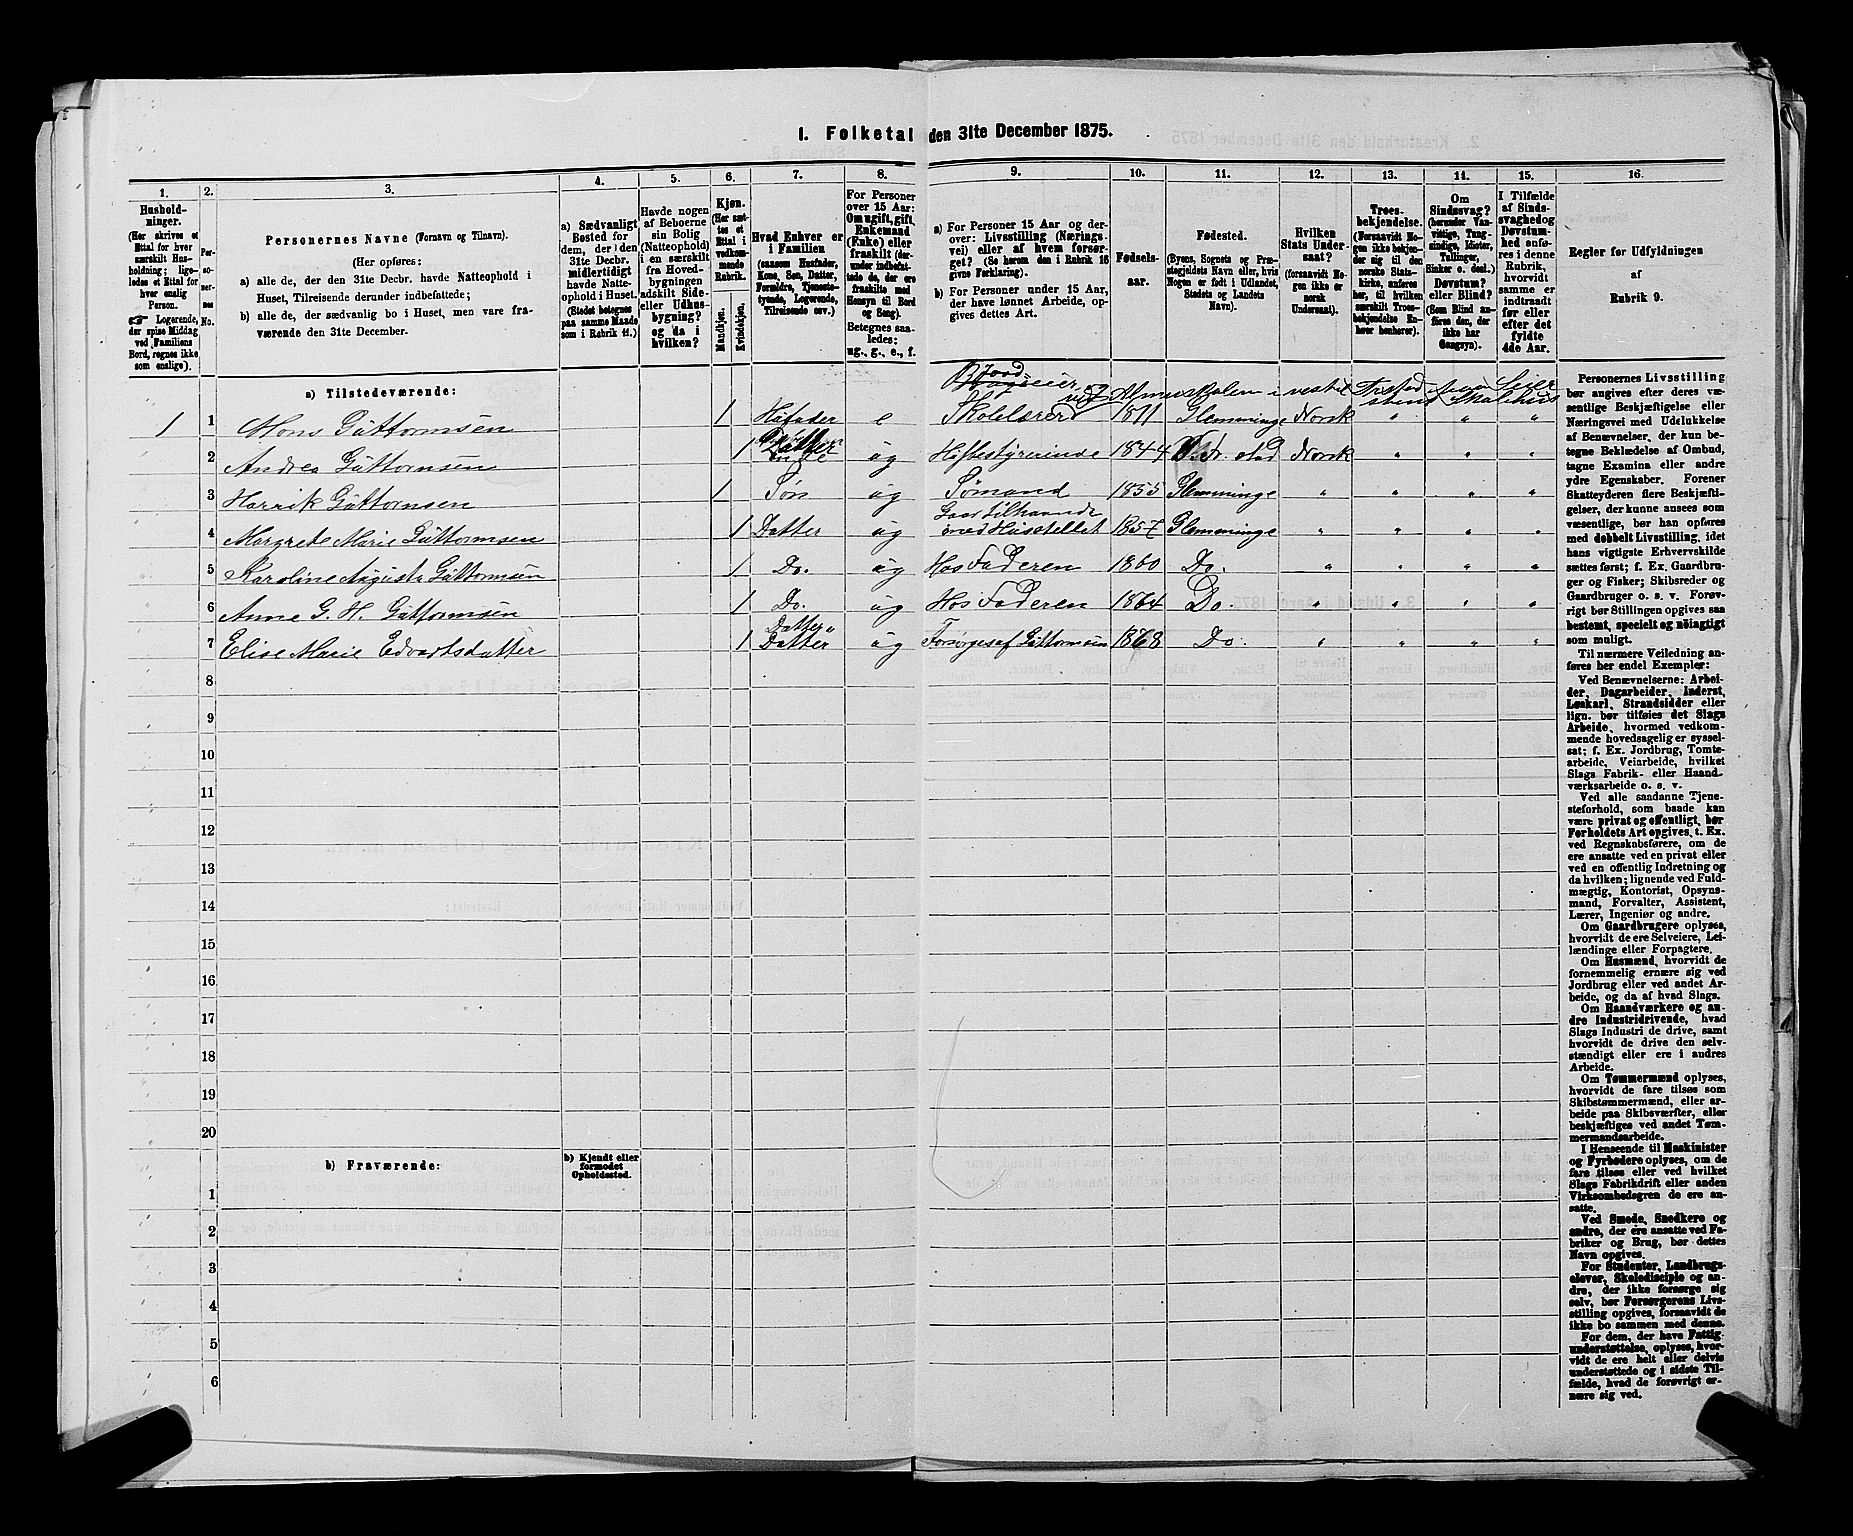 1. Folketal den 31te December 1875.
1. 2. 3. 4. 5. 6. 7. 8. 9. 10. 11. 12. 13. 14. 15. 16.
Hushold-
ninger.
(Her skrives et
Ettal for hver
særskilt Hus-
holdning; lige-
ledes et Ettal for
hver enslig
Person.
Logerende,
der spise Middag
ved Familiens
Bord, regnes ikke
som enslige).
Per-
so-
ner-
nes
No.
Personernes Navne (Fornavn og Tilnavn).
(Her opføres:
a) alle de, der den 31te Decbr. havde Natteophold i
Huset, Tilreisende derunder indbefattede;
b) alle de, der sædvanlig bo i Huset, men vare fra-
værende den 31te December.
a) Sædvanligt
Bosted for
dem, der i den
31te Decbr.
midlertidigt
havde Natte-
ophold i Huset.
(Stedet betegnes
paa samme Maade
som i Rubrik 11.)
Havde nogen
af Beboerne
sin Bolig
(Natteophold)
i en særskilt
fra Hoved-
bygningen
adskilt Side-
eller Udhus-
bygning?
og da i
hvilken?
Kjøn.
(Her sæt-
tes et
Ettal i
vedkom-
mende
Rubrik.
Mandkjøn.
Kvindekjøn.
Hvad Enhver er
i Familien
(saasom Husfader,
Kone, Søn, Datter,
Forældre, Tjeneste-
tyende, Logerende,
Tilreisende osv.)
For Personer
over 15 Aar:
Om ugift, gift,
Enkemand
(Enke) eller
fraskilt (der-
under indbefat-
tede de, der ere
fraskilte med
Hensyn til Bord
og Seng).
Betegnes saa-
ledes:
ug., g., e., f.
a) For Personer 15 Aar og der-
over: Livsstilling (Nærings-
vei) eller af hvem forsør-
get? (Se herom den i Rubrik 16
givne Forklaring).
b) For Personer under 15 Aar,
der have lønnet Arbeide, op-
gives dettes Art.
Fødsels-
aar.
Fødested.
(Byens, Sognets og Præ-
stegjeldets Navn eller, hvis
Nogen er født i Udlandet,
Stedets og Landets
Navn).
Hvilken
Stats Under-
saat?
(forsaavidt No-
gen ikke er
norsk
Undersaat).
Troes-
bekjendelse.
(Forsaavidt No-
gen ikke bekjen-
der sig til den
norske Stats-
kirke, anføres
her, til hvilken
særskilt Troes-
bekjendelse En-
hver henhører).
Om
Sindssvag?
(herunder Van-
vittige, Tung-
sindige, Idioter,
Tullinger,
Sinker o. desl.)
Døvstum?
eller Blind?
(Som Blind an-
føres den, der
ikke har
Gangsyn).
I Tilfælde
af Sinds-
svaghed og
Døvstum-
hed anfø-
res i denne
Rubrik,
hvorvidt
samme er
indtraadt
før eller
efter det
fyldte
4de Aar.
Regler for Udfyldningen
af
Rubrik 9.
a) Tilstedeværende:
1 1 Mons Guttormsen 1 Husfader e Skolelærer 1811 Glemminge Norsk " " "
2 Andrea Guttormsen 1 Datter ug Høstestyrerinde 1844 Fr. stad Norsk " " "
3 Henrik Guttormsen 1 Søn ug Sømand 1855 Glemminge " " " "
Gaar tilhaande
4 Margrete Marie Guttormsen 1 Datter ug med Husstellet 1857 Glemminge " " " "
5 Karoline Augusta Guttormsen 1 Do. ug Hos Faderen 1860 Do. " " " "
6 Anne G. H. Guttormsen 1 Do. ug Hos Faderen 1864 Do. " " " "
Datter
7 Elise Marie Edvartsdatter 1 Datter ug Forsørges af Guttormsen 1868 Do. " " " "
8
9
10
11
12
13
14
15
16
17
18
19
20
b) Fraværende:
b) Kjendt eller
formodet
Opholdssted.
1
2
3
4
5
6
Personernes Livsstilling
bør angives efter deres væ-
sentlige Beskjæftigelse eller
Næringsvei med Udelukkelse
af Benævnelser, der kun be-
tegne Beklædelse af Ombud,
tagne Examina eller andre
ydre Egenskaber. Forener
Skatteyderen flere Beskjæfti-
gelser, der kunne ansees som
væsentlige, bør han opføres
med dobbelt Livsstilling, idet
hans vigtigste Erhvervskilde
sættes først; f. Ex. Gaardbru-
ger og Fisker; Skibsreder og
Gaardbruger o. s. v. Forøv-
rigt bør Stillingen opgives saa
bestemt, specielt og nøiagtigt
som muligt.
Til nærmere Veiledning an-
føres her endel Exempler:
Ved Benævnelserne: Arbei-
der, Dagarbeider, Inderst,
Løskarl, Strandsidder eller
lign. bør tilføies det Slags
Arbeide, hvormed vedkom-
mende hovedsagelig er syssel-
sat; f. Ex. Jordbrug, Tomte-
arbeide, Veiarbeide, hvilket
Slags Fabrik- eller Haand-
værksarbeide o. s. v.
Ved alle saadanne Tjene-
steforhold, som baade kan
være privat og offentligt, bør
Forholdets Art opgives, t. Ex.
ved Regnskabsførere, om de
ere ansatte ved en privat eller
ved en offentlig Indretning og
da hvilken; lignende ved Fuld-
mægtig, Kontorist, Opsyns-
mand, Forvalter, Assistent,
Lærer, Ingeniør og andre.
Om Gaardbrugere oplyses,
hvorvidt de ere Selveiere, Lei-
lændinge eller Forpagtere.
Om Husmænd, hvorvidt de
fornemmelig ernære sig ved
Jordbrug eller ved andet Ar-
beide, og da af hvad Slags.
Om Haandværkere og an-
dre Industridrivende, hvad
Slags Industri de drive, samt
hvorvidt de drive den selv-
stændigt eller ere i andres
Arbeide.
Om Tømmermænd oplyses,
hvorvidt de fare tilsøs som
Skibstømmermænd, eller ar-
beide paa Skibsværfter, eller
beskjæftiges ved andet Tøm-
mermandsarbeide.
I Henseende til Maskinister
og Fyrbødere oplyses, om de
fare tilsøs eller ved hvilket
Slags Fabrikdrift eller anden
Virksomhedsgren de ere an-
satte.
Ved Smede, Snedkere og
andre, der ere ansatte ved Fa-
briker og Brug, bør dettes
Navn opgives.
For Studenter, Landbrugs-
elever, Skoledisciple og an-
dre, der ikke forsørge sig
selv, bør Forsørgerens Livs-
stilling opgives, forsaavidt de
ikke bo sammen med denne.
For dem, der have Fattig-
understøttelse, oplyses, hvor-
vidt de ere helt eller delvis
understøttede og i sidste Til-
fælde, hvad de forøvrigt er-
nære sig ved.